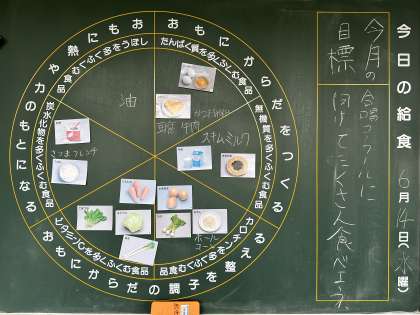 今日の給食 6月14日(水曜)
今月の
目標
合唱コンクールに
向けてたくさん食べよう。
おもにからだをつくる
たんぱく質を多くふくむ食品
無機質を多くふくむ食品
おもにからだの調子を整える
カロチンを多くふくむ食品
ビタミンCを多くふくむ食品
おもに熱や力のもとになる
炭水化物を多くふくむ食品
しぼうを多くふくむ食品
油
豆腐 牛肉
スキムミルク
さつまフレンチ
ホール
コーン